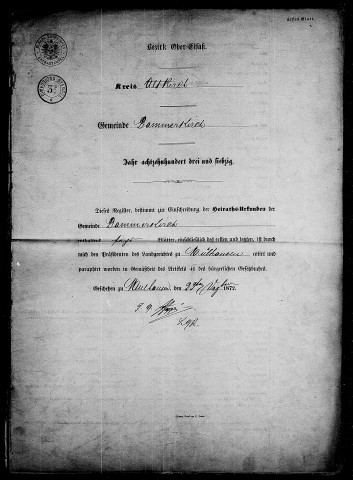 Erstes Blatt.
Bezirk Ober-Elsaß.
Kreis Altkirch
Gemeinde Dammerkirch
Jahr achtzehnhundert drei und siebzig.
Dieses Register, bestimmt zur Einschreibung der Heiraths-Urkunden der
Gemeinde Dammerkirch
enthaltend Blätter, einschließlich des ersten und letzten, ist durch
mich den Präsidenten des Landgerichts zu Mülhausen cotirt und
paraphirt worden in Gemäßheit des Artikels 41 des bürgerlichen Gesetzbuches.
Geschehen zu Mülhausen, den 1872.